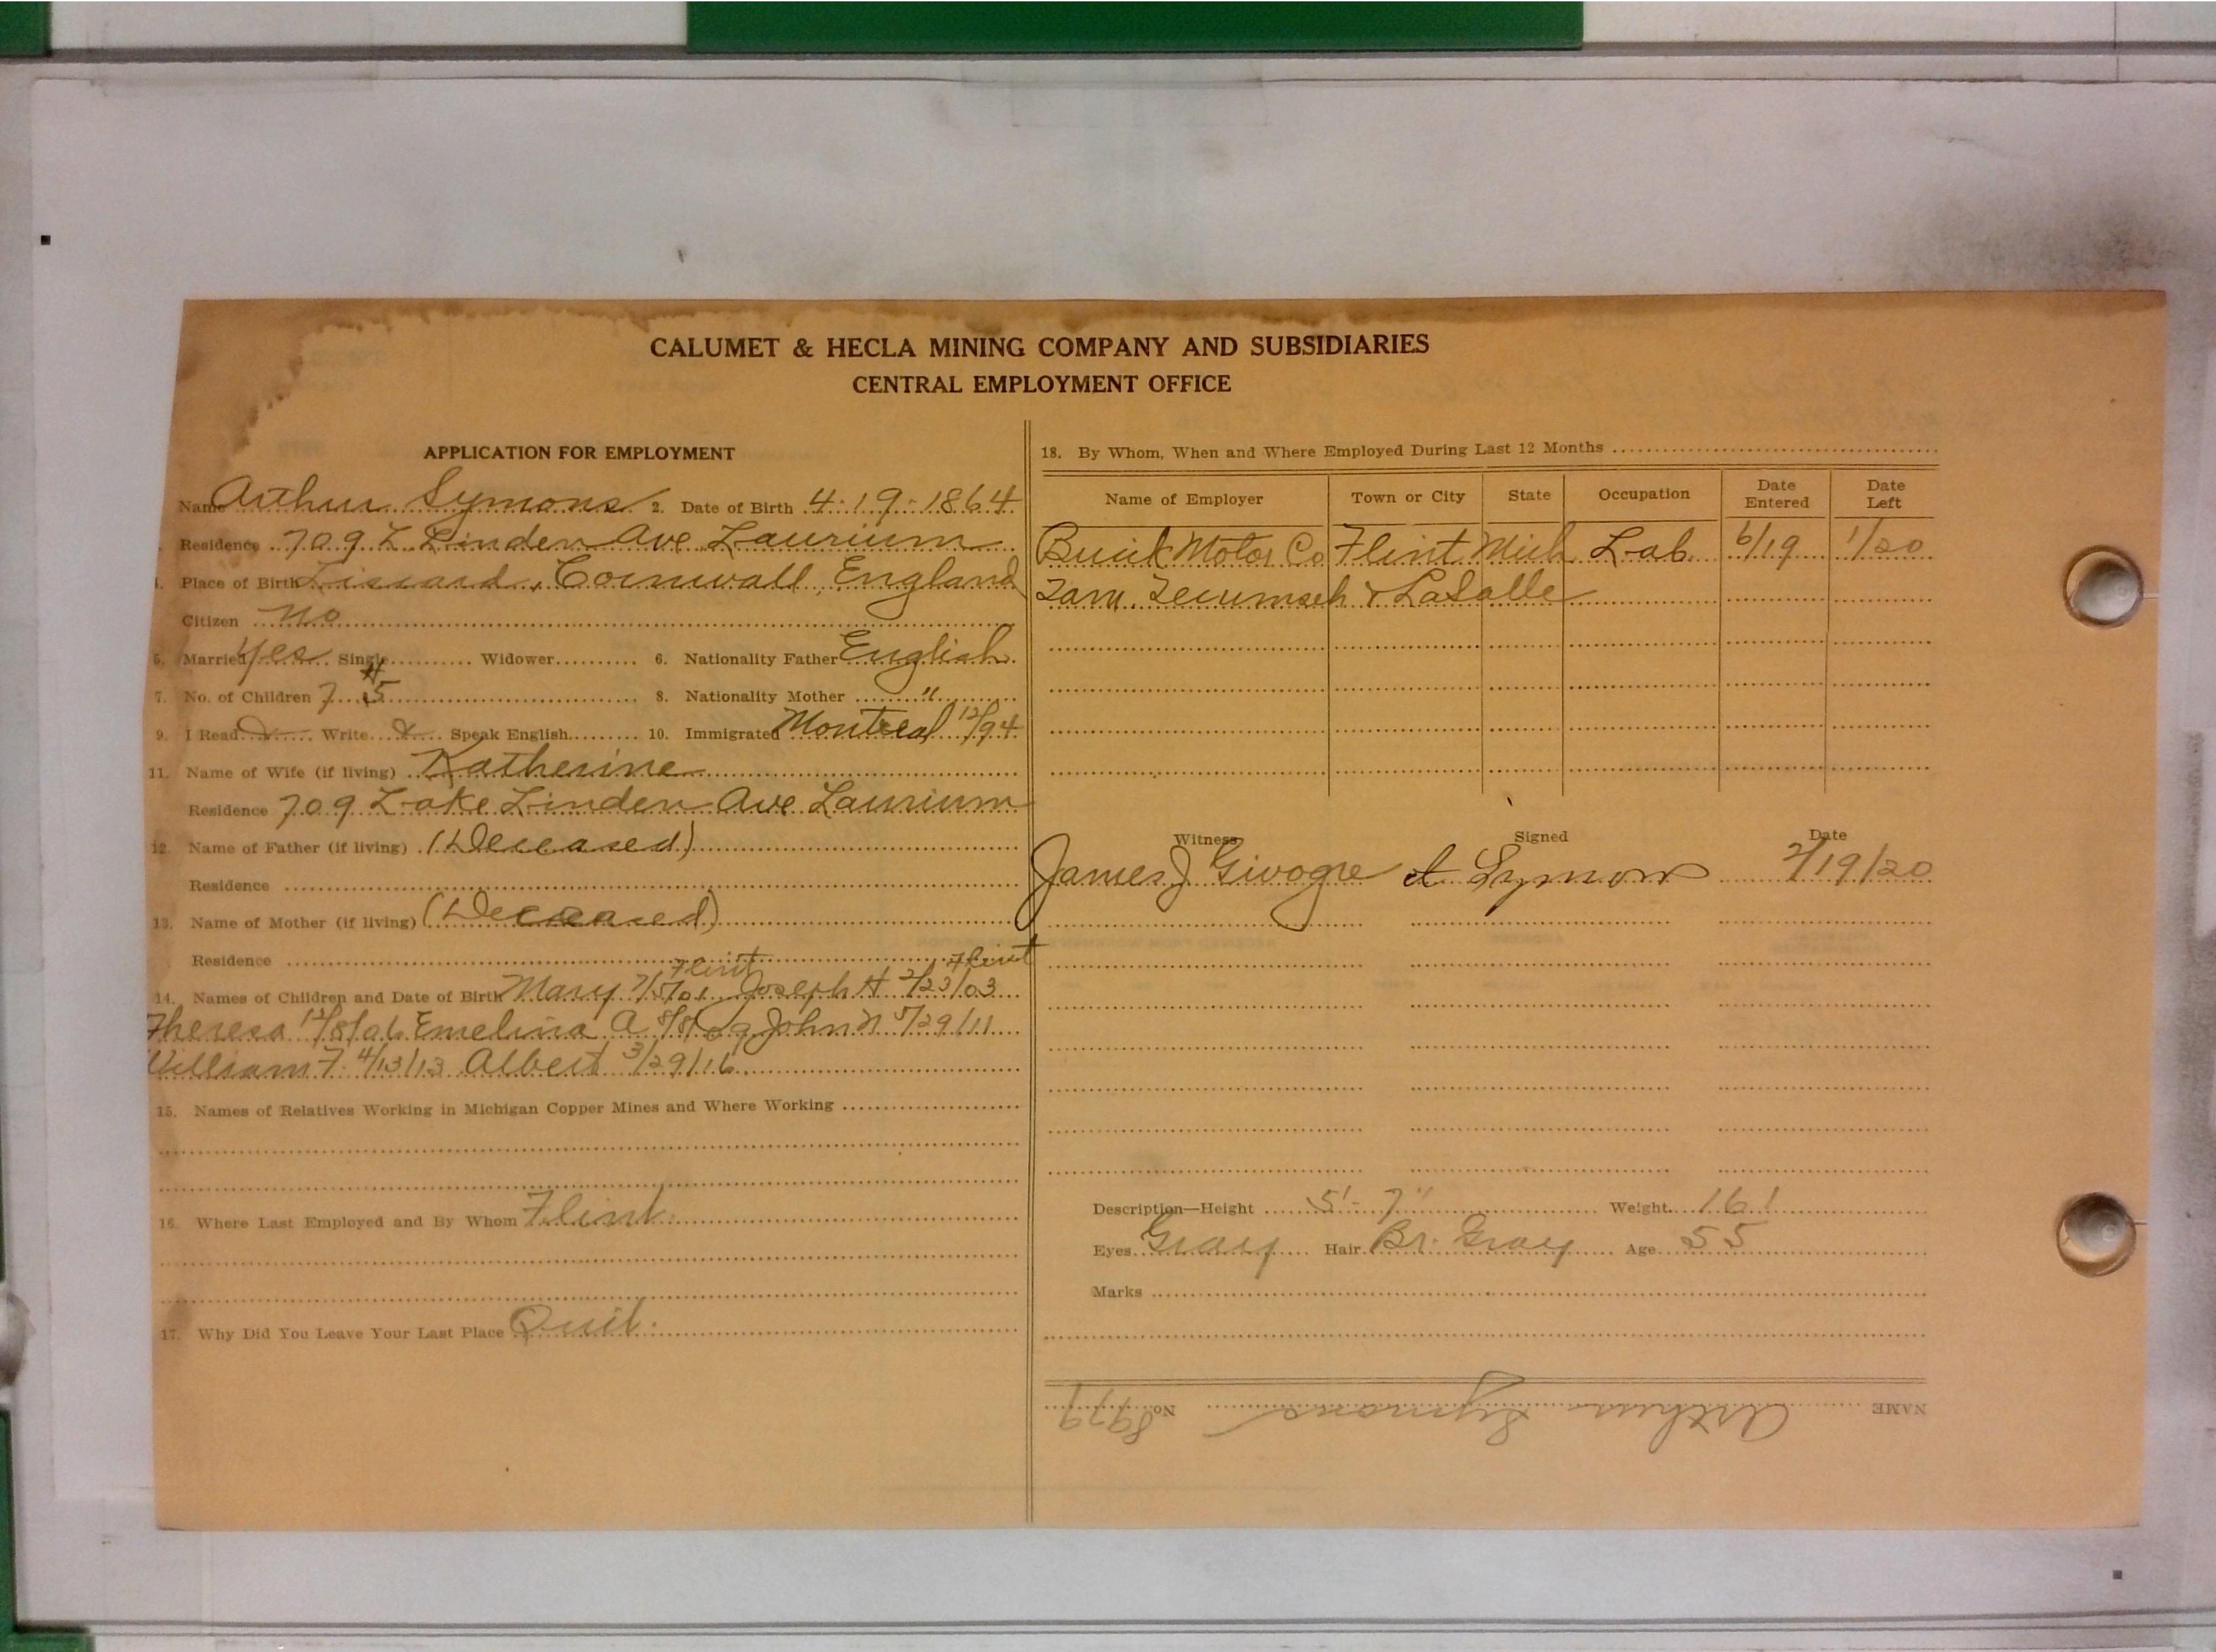 CALUMET & HECLA MINING COMPANY AND SUBSIDIARIES
CENTRAL EMPLOYMENT OFFICE
APPLICATION FOR EMPLOYMENT
Name Arthur Symons 2. Date of Birth 4-19-1864
Residence 709 L Linden Ave Laurium
4. Place of Birth Liscard, Cornwall, England
Citizen No
5. Married Yes Single Widower 6. Nationality Father English
7. No. of Children 7 5 8. Nationality Mother "
9. I Read Write Speak English 10. Immigrated Montreal 12/94
11. Name of Wife (if living) Katherine
Residence 709 Lake Linden Ave Laurium
12. Name of Father (if living) (Deceased)
Residence
13. Name of Mother (if living) (Deceased)
Residence
Flint Flint
14. Names of Children and Date of Birth Mary 7/5/01 Joseph H 2/23/03
Theresa 12/8/06 Emelina A 8/8/09 John N 5/29/11
William F. 4/13/13 Albert 3/29/16
15. Names of Relatives Working in Michigan Copper Mines and Where Working
16. Where Last Employed and By Whom Flint.
17. Why Did You Leave Your Last Place Quit.
18. By Whom, When and Where Employed During Last 12 Months
Name of Employer Town or City State Occupation Date Entered Date Left
Buick Motor Co Flint Mich Lab. 6/19 1/20
Tam. Tecumseh & LaSalle
Witness Signed Date
James J Givogre A Symons 2/19/20
Description—Height 5'-7" Weight 161
Eyes Gray Hair Br. Gray Age 55
Marks
NAME Arthur Symons No. 8979